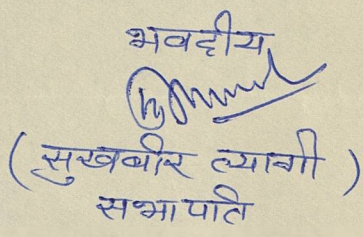 भवदीय
( सुखबीर त्यागी )
सभापति